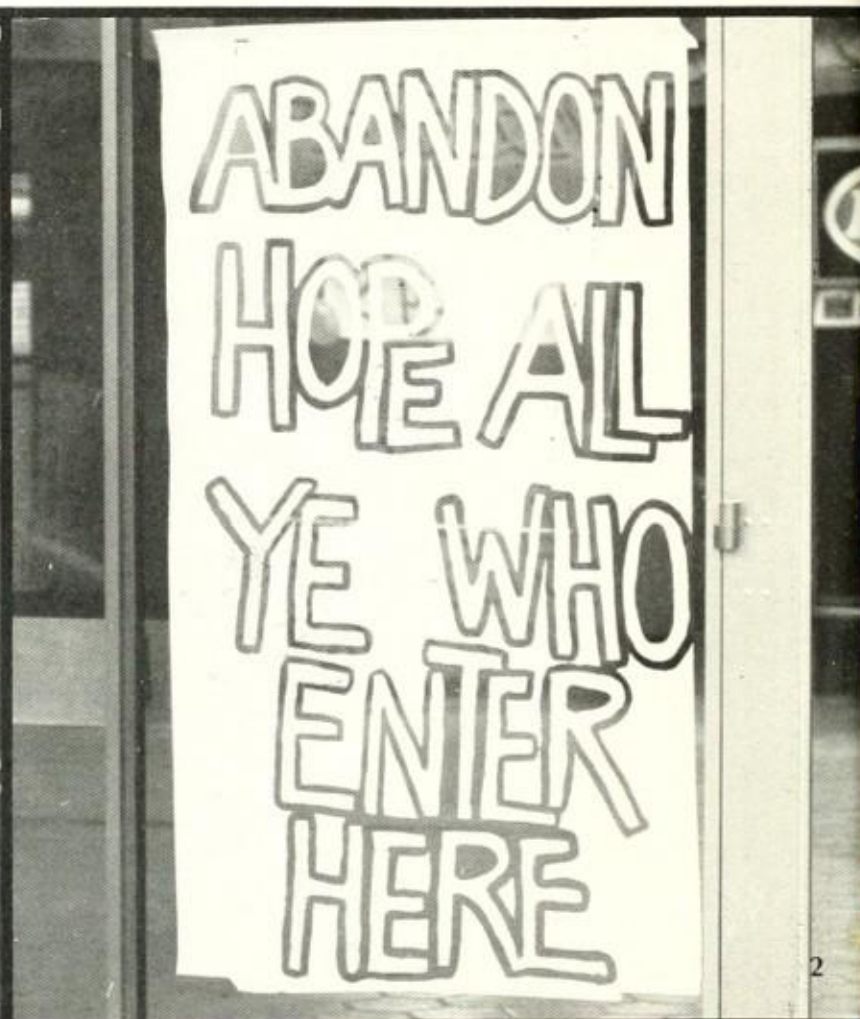 ABANDON
HOPE ALL
YE WHO
ENTER
HERE
2